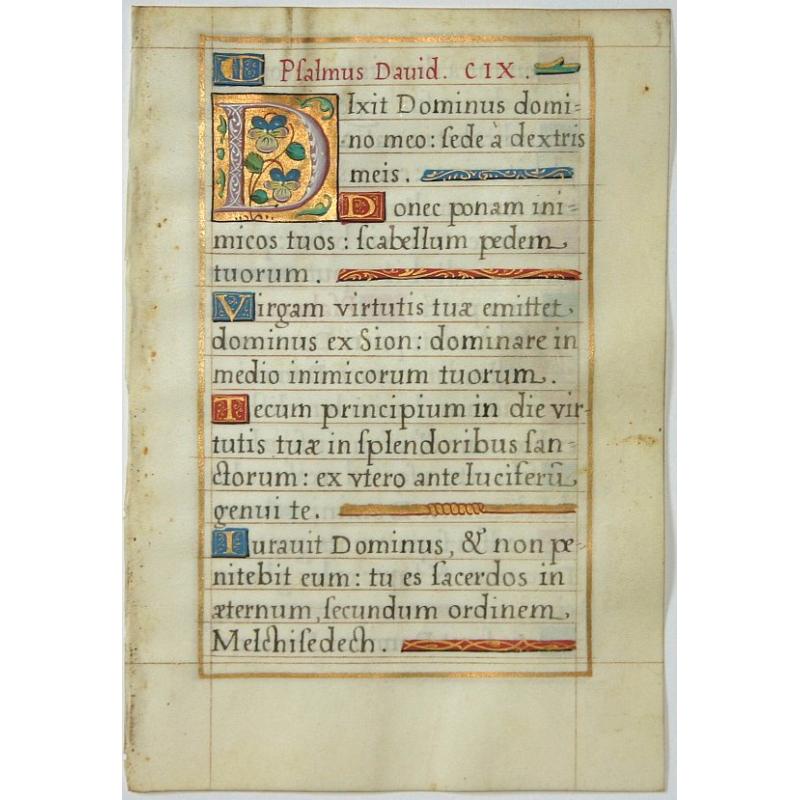 Psalmus Dauid. CIX.
DIxit Dominus domi=
no meo: ſede à dextris
meis.
Donec ponam ini=
micos tuos: ſcabellum pedem
tuorum.
Virgam virtutis tuæ emittet
dominus ex Sion: dominare in
medio inimicorum tuorum.
Tecum principium in die vir-
tutis tuæ in ſplendoribus ſan=
ctorum: ex vtero ante luciferũ
genui te.
Iurauit Dominus, & non pe-
nitebit eum: tu es ſacerdos in
æternum, ſecundum ordinem
Melchiſedech.